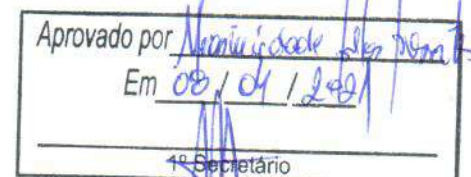 Aprovado por Unanimidade dos
Em 08 / 04 / 2021
1º Secretário